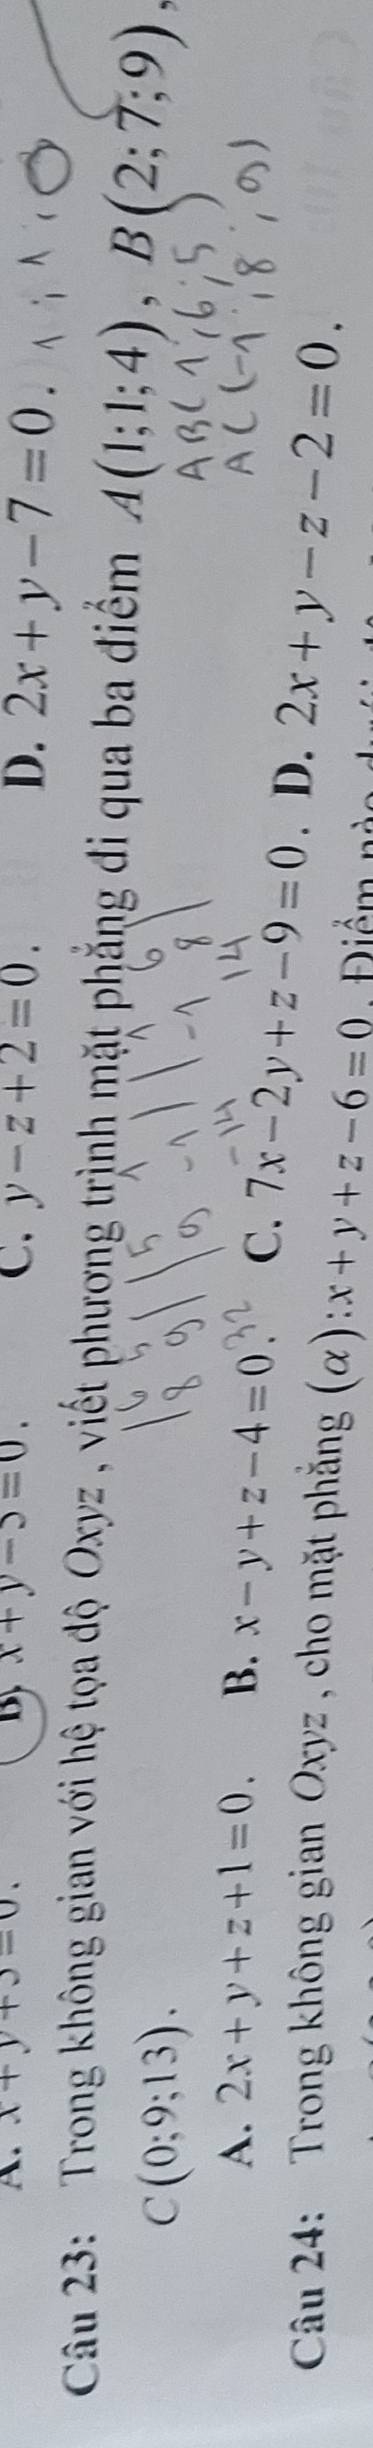 A. x+y+3=0. B. x+y-3=0. C. y-z+2=0. D. 2x+y-7=0. 1;1;0
Câu 23: Trong không gian với hệ tọa độ Oxyz, viết phương trình mặt phẳng đi qua ba điểm A(1;1;4), B(2;7;9),
C(0;9;13). |6 5 | |5 1| |1 6| AB(1;6;5)
|8 9| |9 -1| |-1 8| AC(-1;8;9)
-14 14
A. 2x+y+z+1=0. B. x-y+z-4=0. C. 7x-2y+z-9=0. D. 2x+y-z-2=0.
Câu 24: Trong không gian Oxyz, cho mặt phẳng (α):x+y+z-6=0. Điểm nào